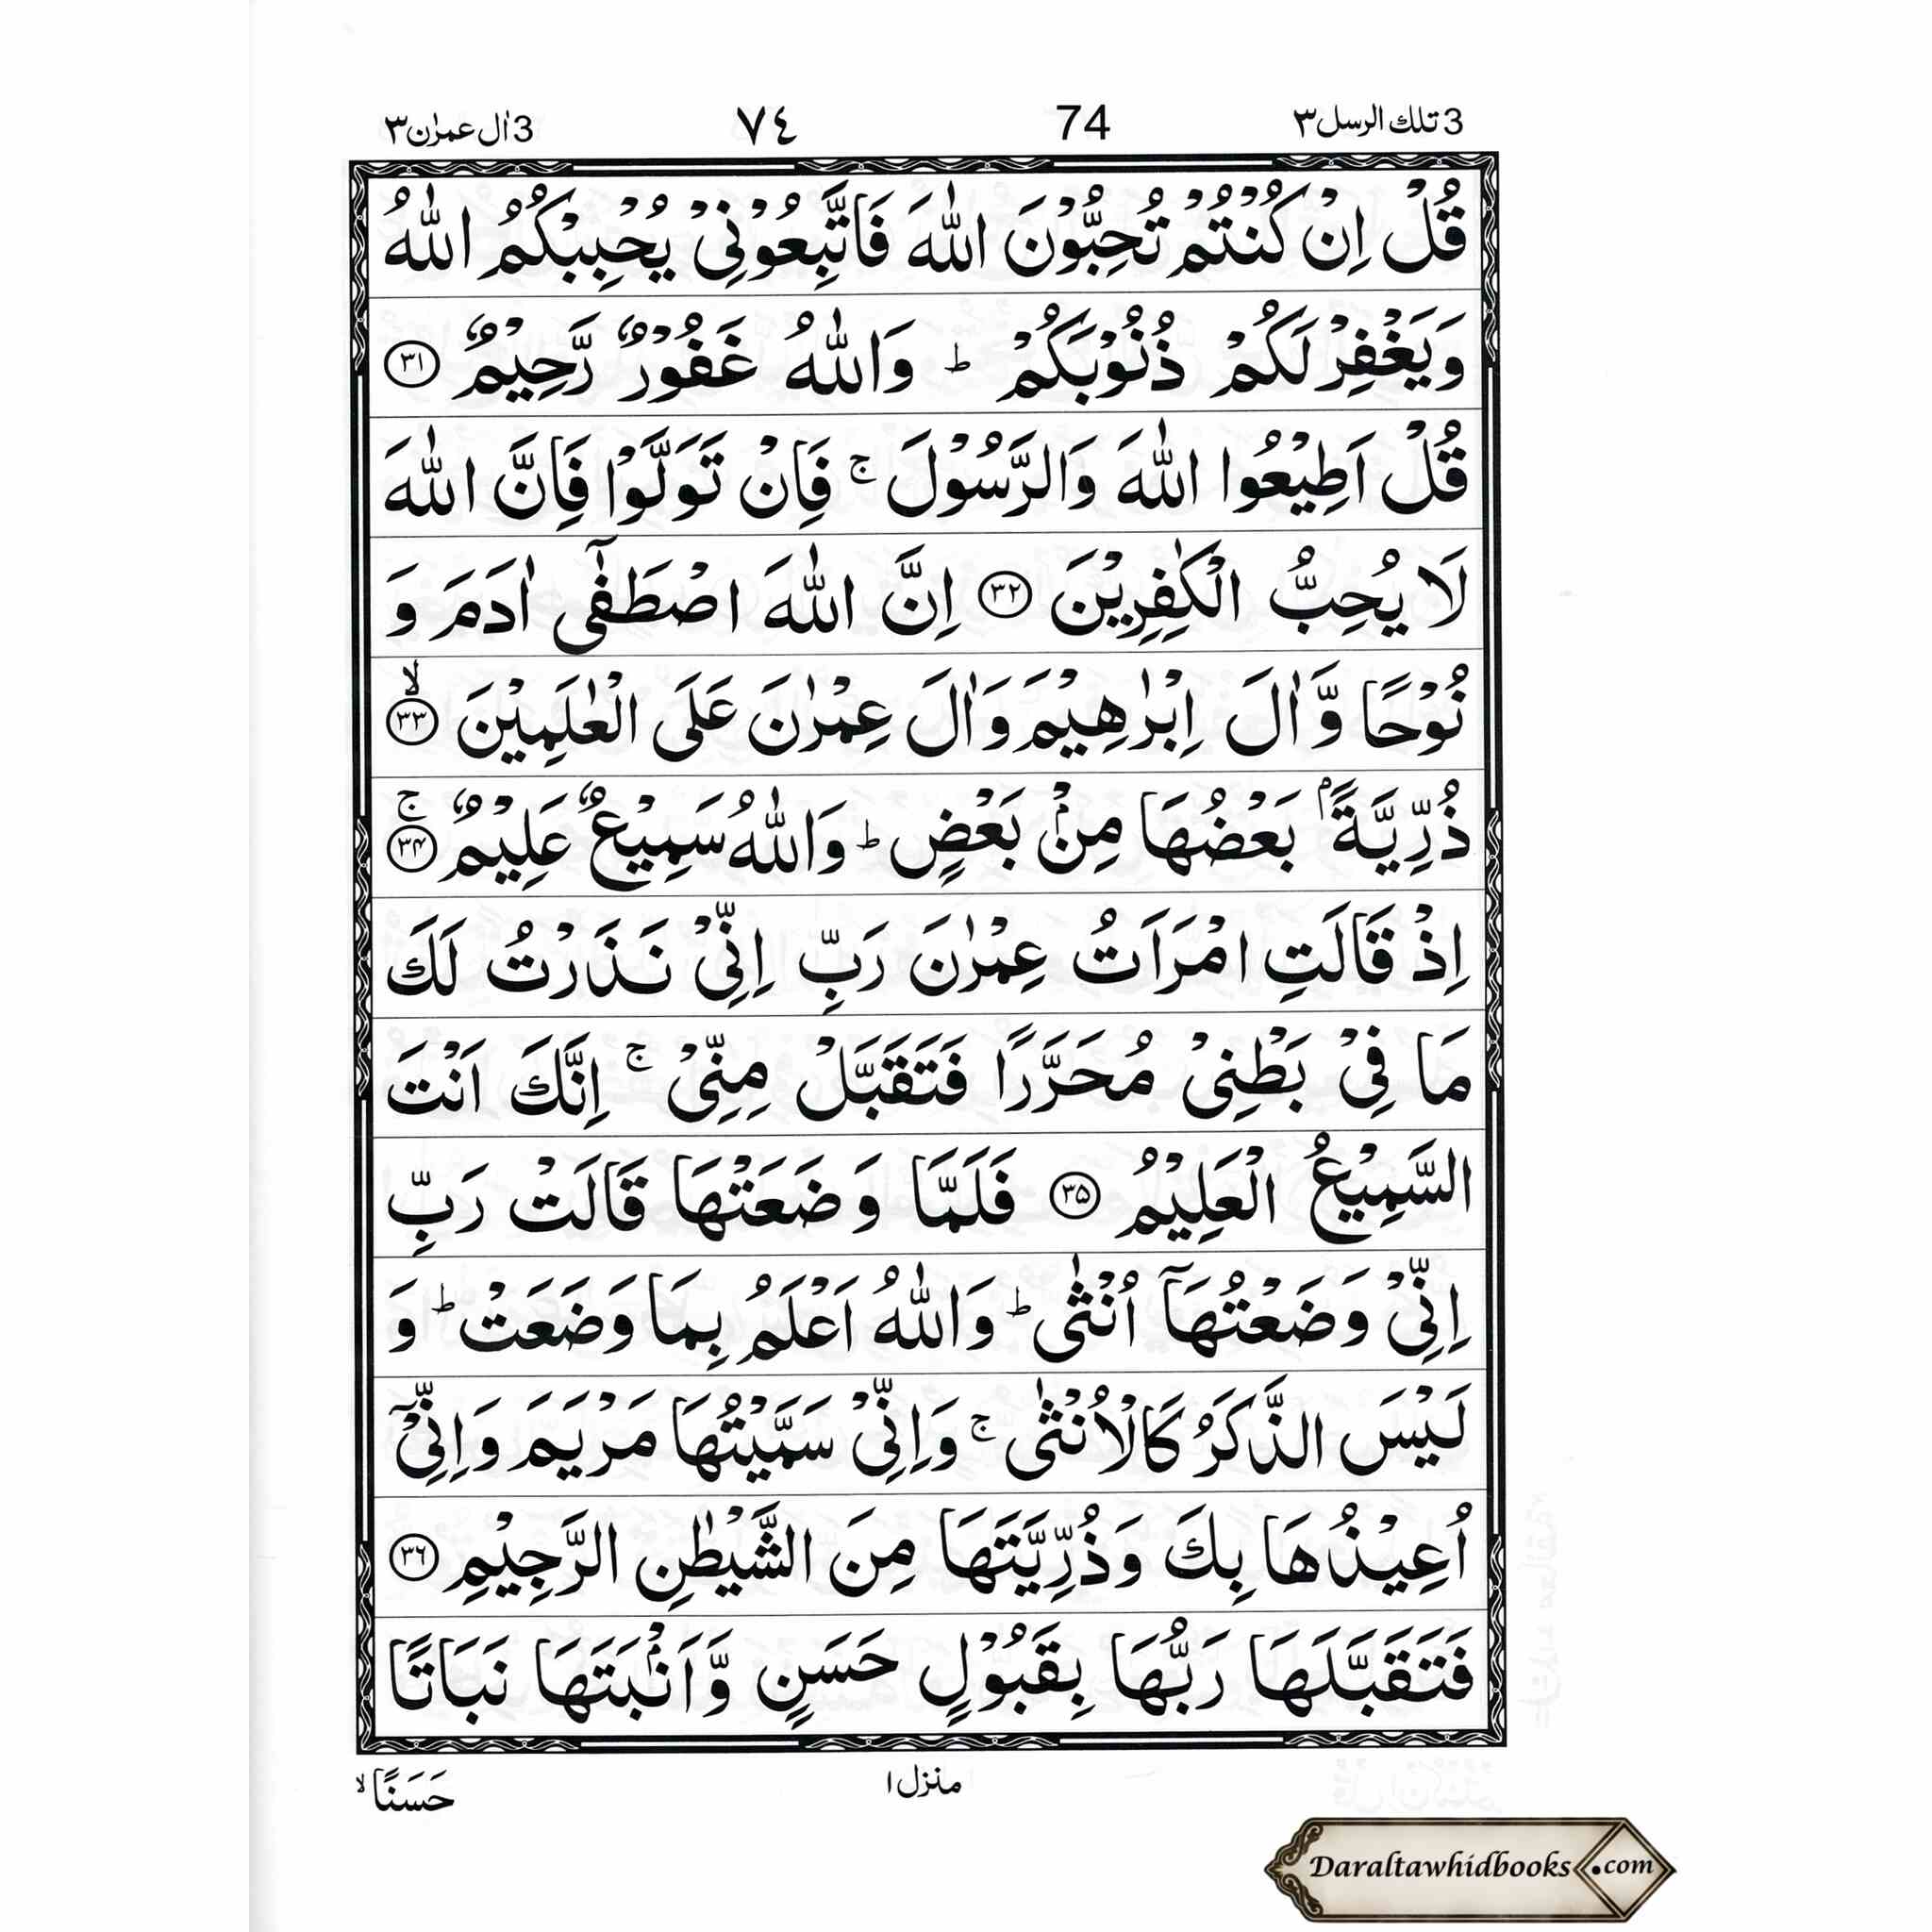 3 تلك الرسل ٣ 74 ٧٤ 3 اٰل عمرٰن ٣
قُلْ اِنْ كُنْتُمْ تُحِبُّوْنَ اللّٰهَ فَاتَّبِعُوْنِیْ یُحْبِبْكُمُ اللّٰهُ
وَیَغْفِرْ لَكُمْ ذُنُوْبَكُمْ ؕ وَاللّٰهُ غَفُوْرٌ رَّحِیْمٌ ۝۳۱
قُلْ اَطِیْعُوا اللّٰهَ وَالرَّسُوْلَ ۚ فَاِنْ تَوَلَّوْا فَاِنَّ اللّٰهَ
لَا یُحِبُّ الْكٰفِرِیْنَ ۝۳۲ اِنَّ اللّٰهَ اصْطَفٰۤی اٰدَمَ وَ
نُوْحًا وَّ اٰلَ اِبْرٰهِیْمَ وَ اٰلَ عِمْرٰنَ عَلَی الْعٰلَمِیْنَ ۙ۝۳۳
ذُرِّیَّةًۢ بَعْضُهَا مِنْۢ بَعْضٍ ؕ وَاللّٰهُ سَمِیْعٌ عَلِیْمٌ ۚ۝۳۴
اِذْ قَالَتِ امْرَاَتُ عِمْرٰنَ رَبِّ اِنِّیْ نَذَرْتُ لَكَ
مَا فِیْ بَطْنِیْ مُحَرَّرًا فَتَقَبَّلْ مِنِّیْ ۚ اِنَّكَ اَنْتَ
السَّمِیْعُ الْعَلِیْمُ ۝۳۵ فَلَمَّا وَضَعَتْهَا قَالَتْ رَبِّ
اِنِّیْ وَضَعْتُهَاۤ اُنْثٰی ؕ وَاللّٰهُ اَعْلَمُ بِمَا وَضَعَتْ ؕ وَ
لَیْسَ الذَّكَرُ كَالْاُنْثٰی ۚ وَاِنِّیْ سَمَّیْتُهَا مَرْیَمَ وَاِنِّیْۤ
اُعِیْذُهَا بِكَ وَذُرِّیَّتَهَا مِنَ الشَّیْطٰنِ الرَّجِیْمِ ۝۳۶
فَتَقَبَّلَهَا رَبُّهَا بِقَبُوْلٍ حَسَنٍ وَّاَنْۢبَتَهَا نَبَاتًا
منزل ۱ حَسَنًا ۙ
Daraltawhidbooks.com